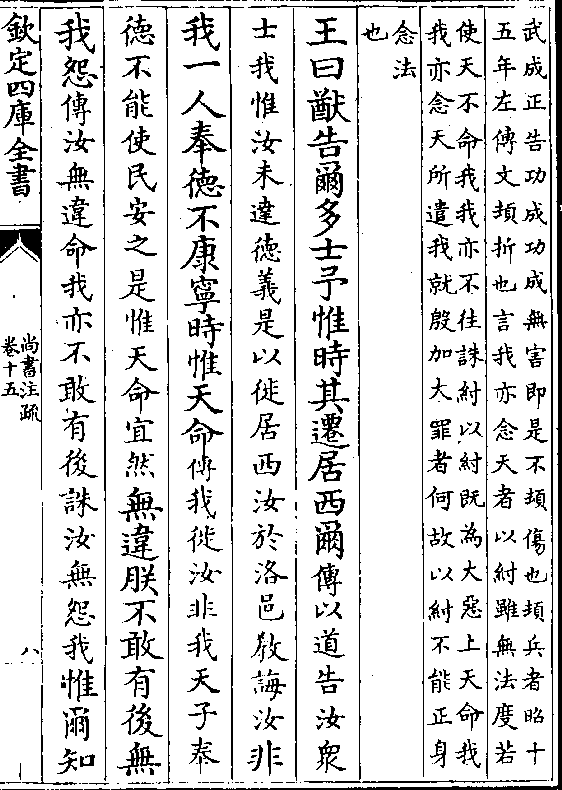 武成正告功成功成無害即是不頓傷也頓兵者昭十
五年左傳文頓折也言我亦念天者以紂雖無法度若
使天不命我我亦不往誅紂以紂既為大惡上天命我
我亦念天所遣我就殷加大罪者何故以紂不能正身
念法
也
王曰猷告爾多士予惟時其遷居西爾傳以道告汝眾
士我惟汝未達德義是以徙居西汝於洛邑教誨汝非
我一人奉德不康寧時惟天命傳我徙汝非我天子奉
德不能使民安之是惟天命宜然無違朕不敢有後無
我怨傳汝無違命我亦不敢有後誅汝無怨我惟爾知
欽定四庫全書
尚書注疏
卷十五
八